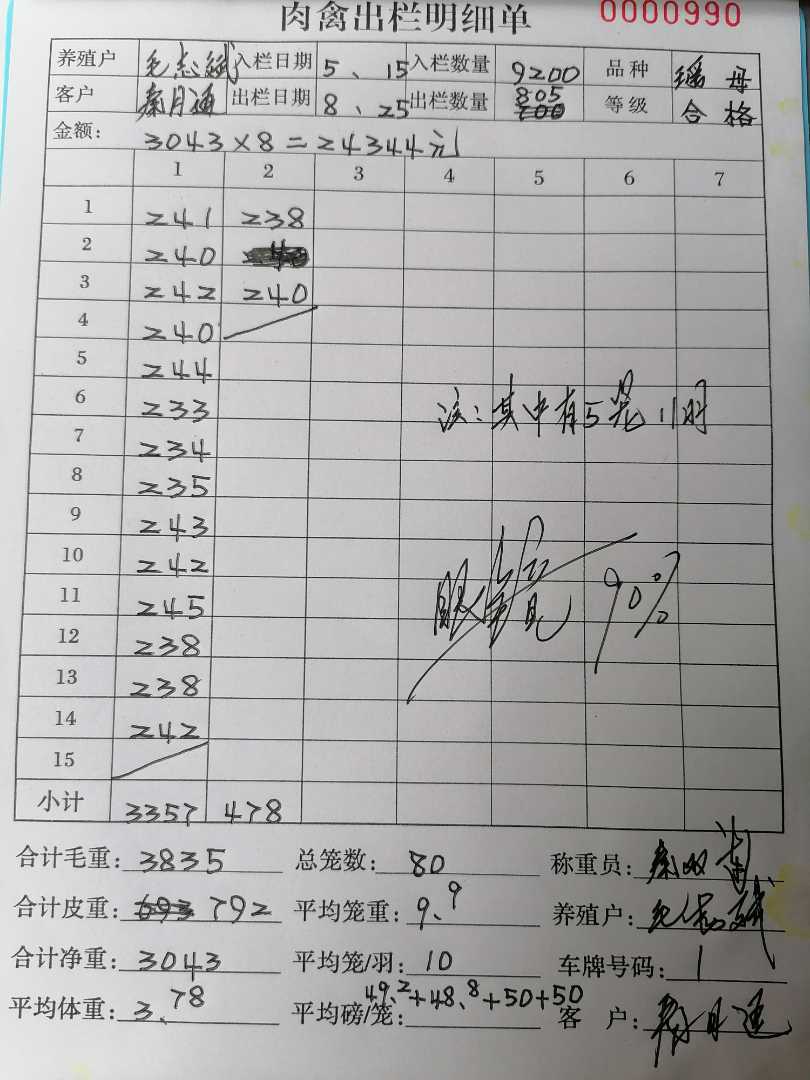 肉禽出栏明细单 0000990
养殖户 入栏日期 5、15 入栏数量 9200 品种 瑶母
客户 秦月通 出栏日期 8、25 出栏数量 805 等级 合格
金额: 3043×8=24344元
1 2 3 4 5 6 7
1 241 238
2 240
3 242 240
4 240
5 244
6 233
7 234
8 235
9 243
10 242
11 245
12 238
13 238
14 242
15
小计 3357 478
注:其中有5笼11羽
眼 90%
合计毛重: 3835 总笼数: 80 称重员:
合计皮重: 693 792 平均笼重: 9.9 养殖户:
合计净重: 3043 平均笼/羽: 10 车牌号码: 1
平均体重: 3.78 平均磅/笼: 49.2+48.8+50+50 客户: 秦月通